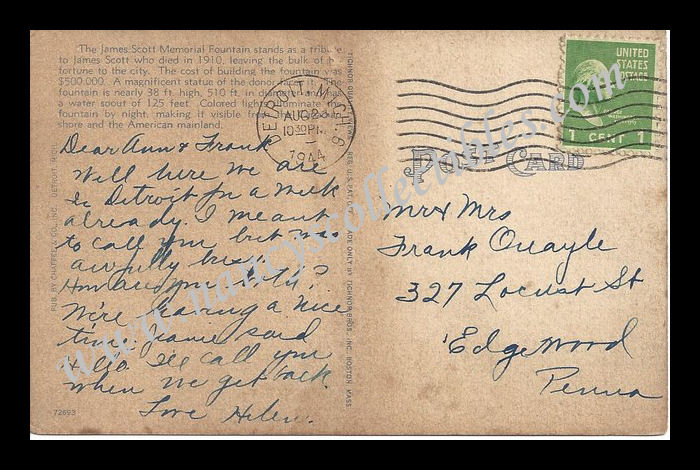 The James Scott Memorial Fountain stands as a tribute
to James Scott who died in 1910, leaving the bulk of his
fortune to the city. The cost of building the fountain was
$500,000. A magnificent statue of the donor
fountain is nearly 38 ft. high, 510 ft. in diameter and has
a water spout of 125 feet. Colored lights illuminate
fountain by night, making it visible from the
shore and the American mainland.
Dear Ann & Frank
Well here we are
in Detroit for a week
already. I meant
to call you but was
awfully busy.
How are you both?
We're having a nice
time. Jeanie said
Hello. I'll call you
when we get back.
Love Helen.
72693
PUB. BY CHAFFEE & CO., INC., DETROIT, MICH.
TICHNOR QUALITY VIEWS, REG. U.S. PAT. OFF. MADE ONLY BY TICHNOR BROS., INC., BOSTON, MASS.
DETROIT, MICH.
AUG 23
10 30 PM
1944
UNITED
STATES
POSTAGE
WASHINGTON
1 CENT 1
POST CARD
Mr & Mrs
Frank Quayle
327 Locust St
Edgewood
Penna
www.nancyscollectibles.com